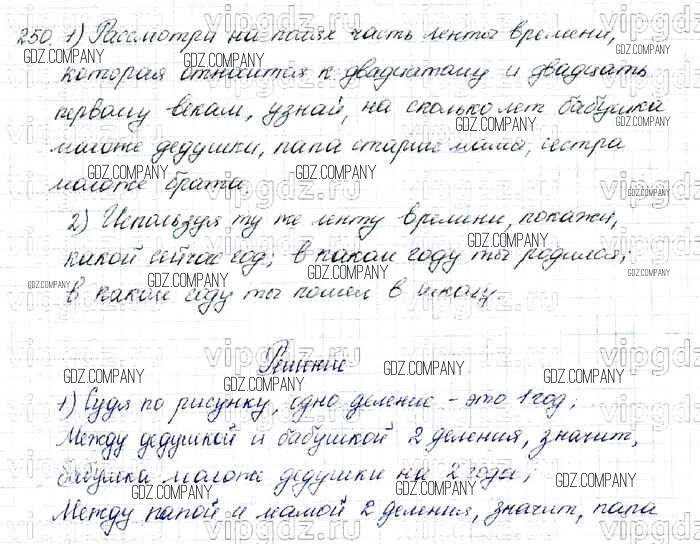 250. 1) Рассмотри на полях часть ленты времени,
которая относится к двадцатому и двадцать
первому векам, узнай, на сколько лет бабушка
моложе дедушки, папа старше мамы, сестра
моложе брата.
2) Используя ту же ленту времени, покажи,
какой сейчас год; в каком году ты родился;
в каком году ты пошел в школу.
Решение
1) Судя по рисунку, одно деление - это 1 год;
Между дедушкой и бабушкой 2 деления, значит,
бабушка моложе дедушки на 2 года;
Между папой и мамой 2 деления, значит, папа